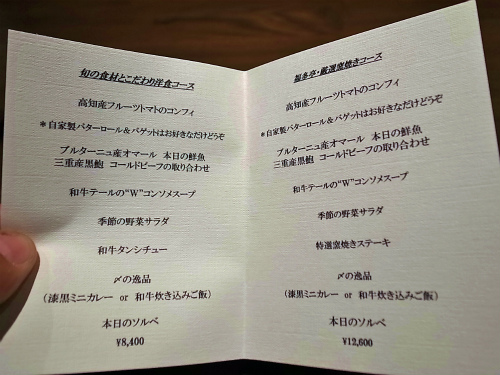 旬の食材とこだわり洋食コース
高知産フルーツトマトのコンフィ
＊自家製バターロール＆バゲットはお好きなだけどうぞ
ブルターニュ産オマール　本日の鮮魚
三重産黒鮑　コールドビーフの取り合わせ
和牛テールの“W”コンソメスープ
季節の野菜サラダ
和牛タンシチュー
〆の逸品
（漆黒ミニカレー　or　和牛炊き込みご飯）
本日のソルベ
¥8,400
厳選窯焼きコース
高知産フルーツトマトのコンフィ
＊自家製バターロール＆バゲットはお好きなだけどうぞ
ブルターニュ産オマール　本日の鮮魚
三重産黒鮑　コールドビーフの取り合わせ
和牛テールの“W”コンソメスープ
季節の野菜サラダ
特選窯焼きステーキ
〆の逸品
（漆黒ミニカレー　or　和牛炊き込みご飯）
本日のソルベ
¥12,600